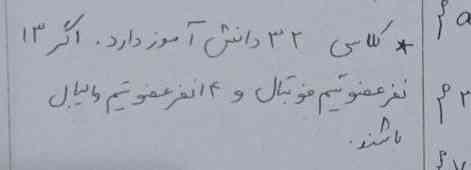 * کلاسی ۳۲ دانش آموز دارد. اگر ۱۳
نفر عضو تیم فوتبال و ۱۴ نفر عضو تیم والیبال
باشند.